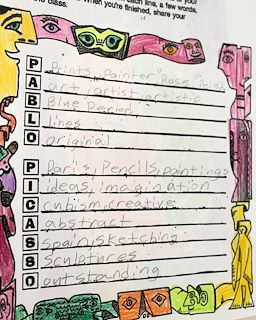 line, a few words,
When you're finished, share your
P Prints, Painter "Rose" Period
A art, artist, artistic
B Blue Period
L lines
O original
P Paris, Pencils, paintings
I ideas, imagination
C cubism, creative
A abstract
S spain, sketching
S Sculptures
O outstanding